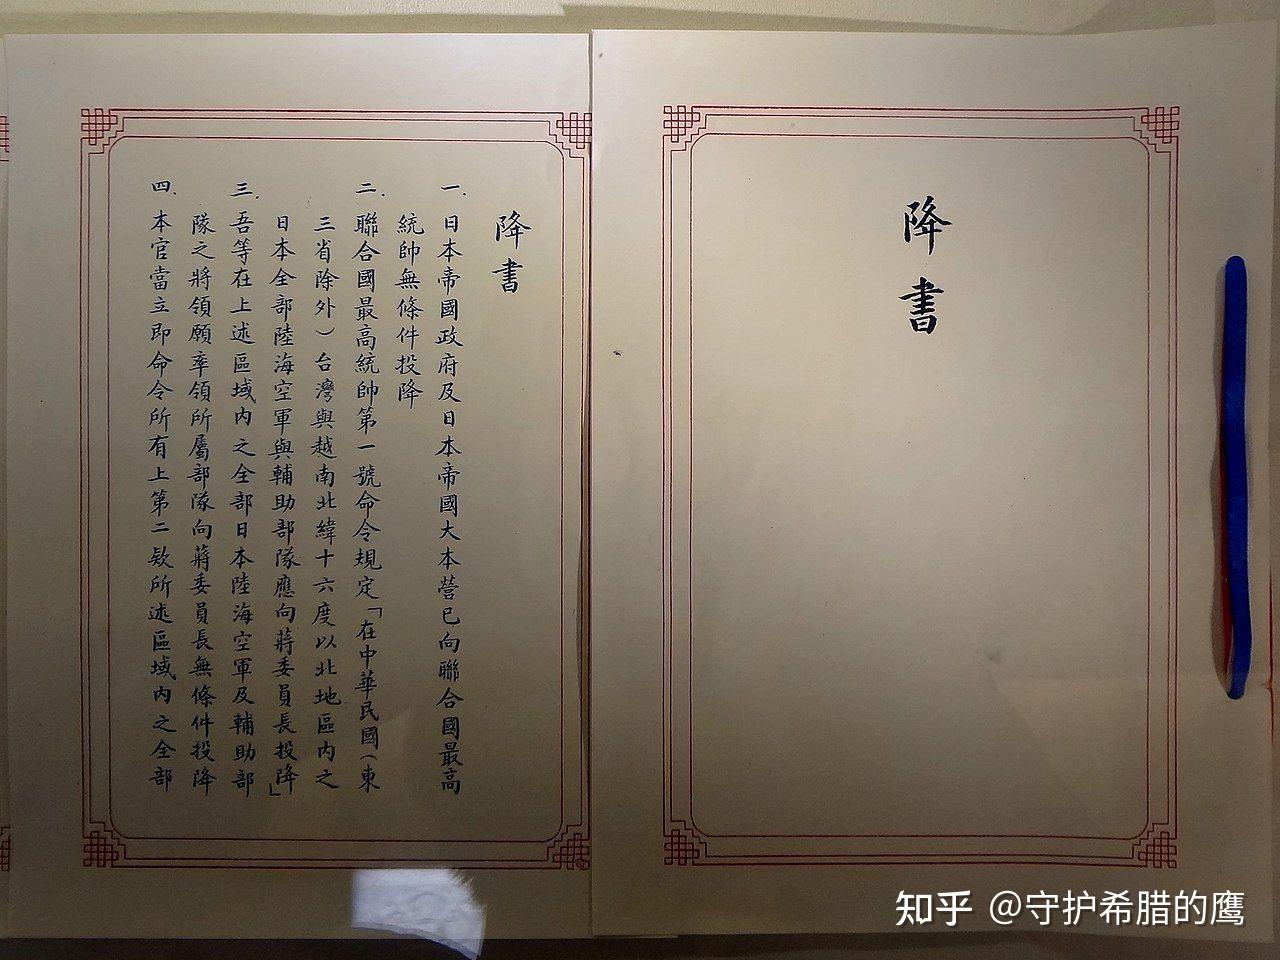 降書
降書
一. 日本帝國政府及日本帝國大本營已向聯合國最高
統帥無條件投降
二. 聯合國最高統帥第一號命令規定「在中華民國(東
三省除外)台灣與越南北緯十六度以北地區內之
日本全部陸海空軍與輔助部隊應向蔣委員長投降」
三. 吾等在上述區域內之全部日本陸海空軍及輔助部
隊之將領願率領所屬部隊向蔣委員長無條件投降
四. 本官當立即命令所有上第二款所述區域內之全部
知乎 @守护希腊的鹰